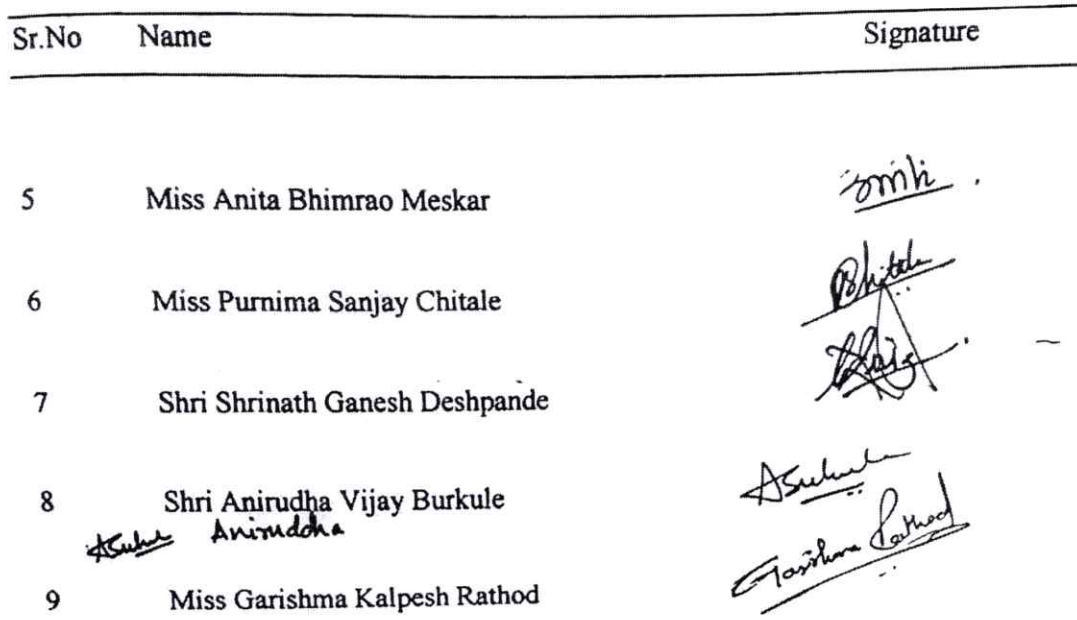 Sr.No Name Signature
5 Miss Anita Bhimrao Meskar
6 Miss Purnima Sanjay Chitale
7 Shri Shrinath Ganesh Deshpande
8 Shri Anirudha Vijay Burkule
Aniruddha
9 Miss Garishma Kalpesh Rathod Garishma Rathod